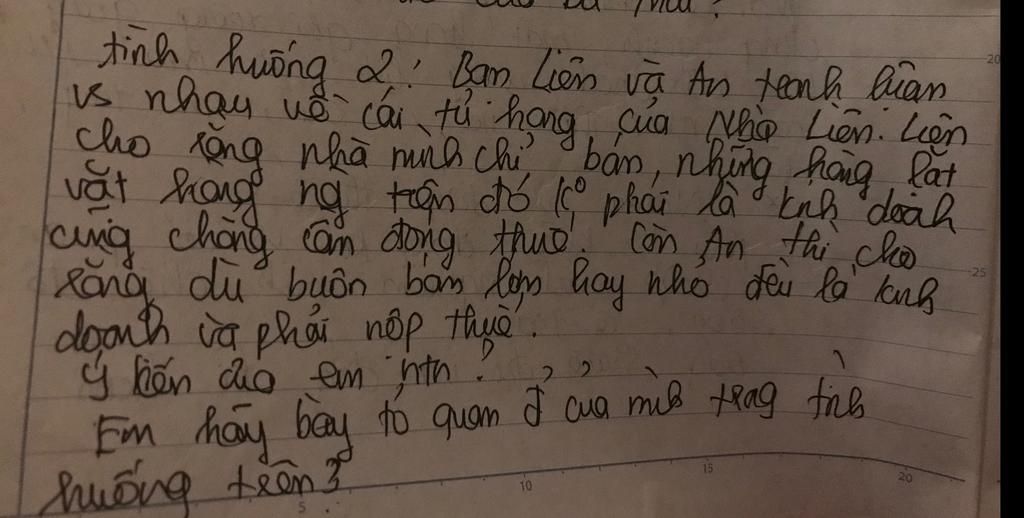 tình huống 2: Bạn Liên và An tranh luận
vs nhau về cái tủ hàng của Nhà Liên. Liên
cho rằng nhà mình chỉ bán những hàng lặt
vặt hàng ng trên đó k⁰ phải là knh doanh
cũng chẳng cần đóng thuế. Còn An thì cho
rằng dù buôn bán lớn hay nhỏ đều là knh
doanh và phải nộp thuế.
Ý kiến của em ntn?
Em hãy bày tỏ quan đ' của mìh trog tìh
huống trên?